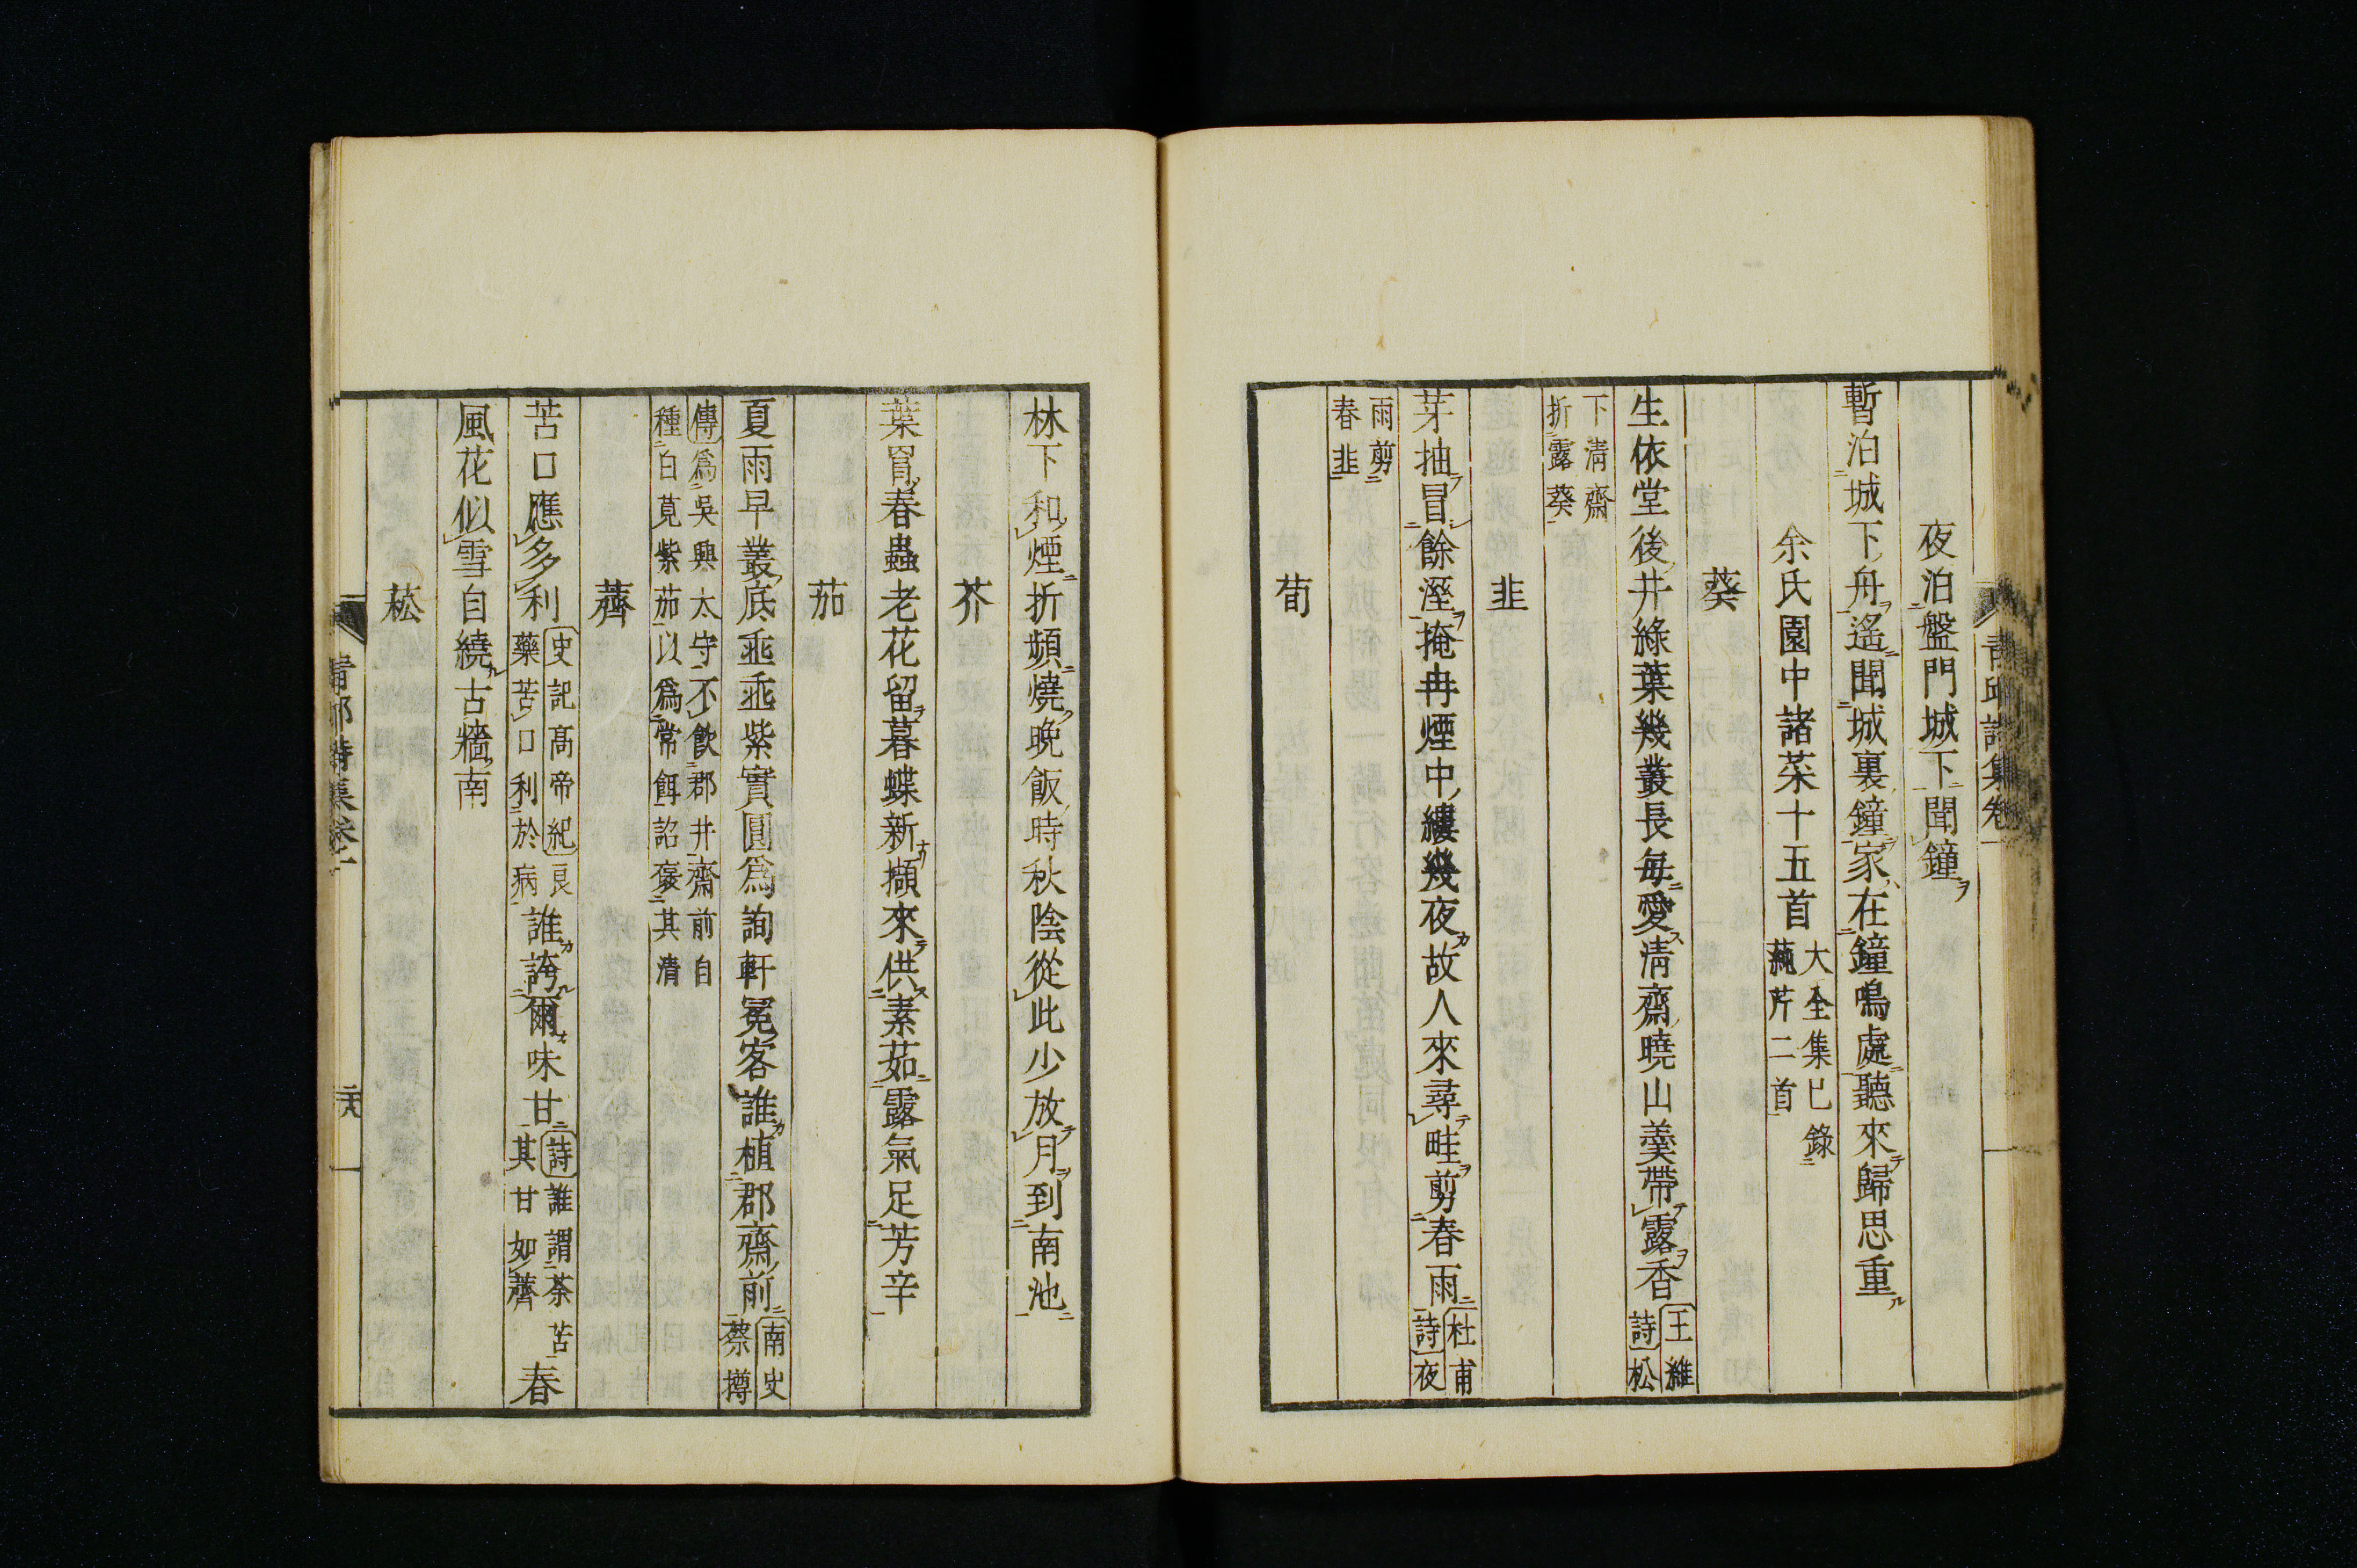 夜泊盤門城下聞鐘
暫泊城下舟遙聞城裏鐘家在鐘鳴處聽來歸思重
余氏園中諸菜十五首大全集已錄蓴芹二首
葵
生依堂後井綠葉幾叢長每愛淸齋曉山羹帶露香王維詩松
下淸齋折露葵
韭
芽抽冒餘溼掩冉煙中縷幾夜故人來尋畦剪春雨杜甫詩夜
雨剪春韭
荀
林下和煙折頻燒晚飯時秋陰從此少放月到南池
芥
葉窅春蟲老花留暮蝶新擷來供素茹露氣足芳辛
茄
夏雨早叢底垂垂紫實圓爲詢軒冕客誰植郡齋前南史蔡撙
傳爲吳興太守不飮郡井齋前自種白莧紫茄以爲常餌詔褒其淸
薺
苦口應多利史記高帝紀良藥苦口利於病誰誇爾味甘詩誰謂荼苦其甘如薺春
風花似雪自繞古牆南
菘